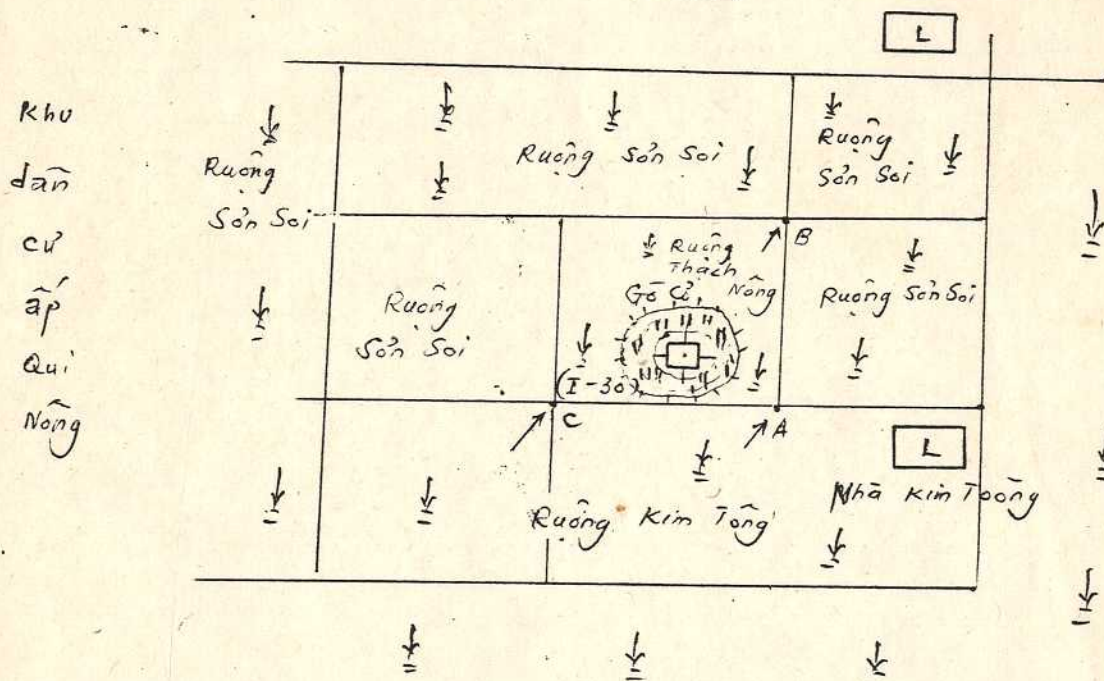 L
Khu
dân
cư
ấp
Qui
Nông
Ruộng
Sơn Soi
Ruộng Sơn Soi
Ruộng
Sơn Soi
Ruộng
Sơn Soi
Ruộng
Thạch
Nông
Gò Cỏ,
Ruộng Sơn Soi
B
(I-30)
C
A
L
Nhà Kim Toông
Ruộng Kim Tông